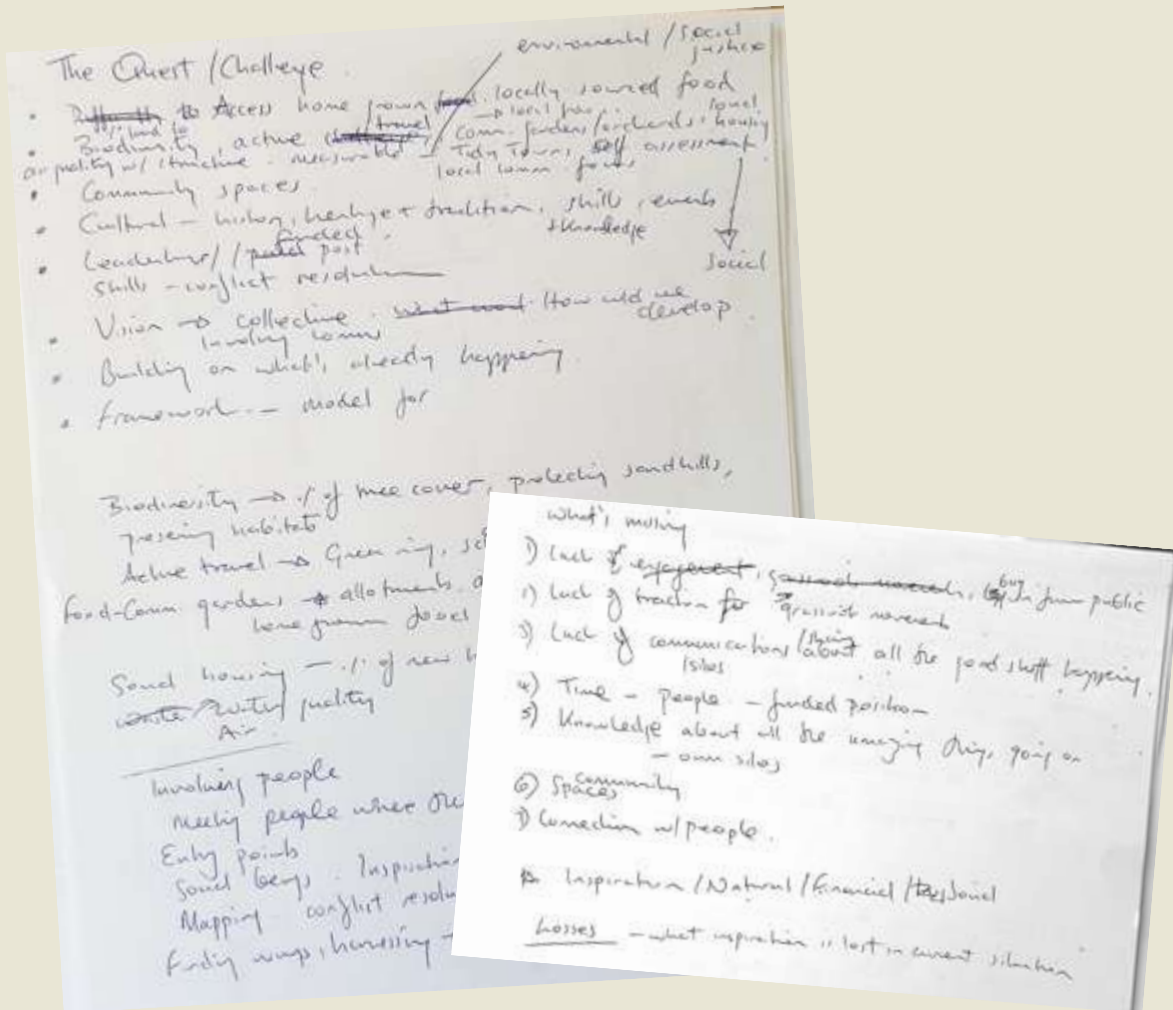 The Quest / Challenge
enviromental / social justice
to Access home grown locally sourced food
Biodiversity, active travel
Comm. gardens/orchards. housing
air quality w/ structure - measurable - Tidy Towns, self assessment
local comm.
Community spaces
Cultural - history, heritage + tradition, skills, events
+ knowledge
social
funded
Leadership / post
skills - conflict resolution
Vision → collective. How could we develop.
involving comm
Building on what's already happening.
Framework - model for
Biodiversity → % of tree cover, protecting sandhills,
preserving habitats
Active travel → Green ring,
Food-Comm gardens → allotments
home grown
Social housing - % of new
water quality
Air
Involving people
Meeting people where
Entry points
Social beings. Inspiration
Mapping conflict
Finding ways, harnessing
what's missing
1) Lack of engagement, grassroots movement, buy in from public
2) Lack of traction for grassroots movement
3) Lack of communications / about all the good stuff happening.
/silos
4) Time - people - funded position
5) Knowledge about all the amazing things going on
- own silos
6) Community Spaces
7) Connection w/ people.
Inspiration / Natural / Financial / Social
Losses - what inspiration is lost in current situation